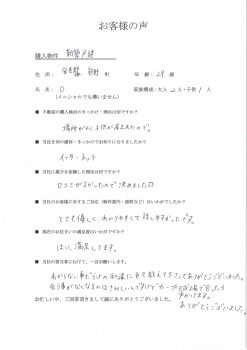 お客様の声
購入物件 新築戸建
住所： 町 年齢：29歳
氏名：O 家族構成・大人2人・子供1人
(イニシャルでも構いません)
■ 不動産の購入検討のきっかけ・理由は何ですか？
場所がよく子供が産まれたので。
■ 当社を何の媒体・きっかけでお知りになりましたか？
インターネット
■ 当社に媒介を依頼した理由は何ですか？
口コミが良かったので決めました
■ 当社のお客様に対するご対応（物件案内・説明など）はいかがでしたか？
とても優しく、わかりやすくて話しやすかったです。
■ 現在のお住まいの満足度はいかがですか？
はい。満足してます。
■ 当社の担当者にむけて、一言お願いします。
わからない事だらけの私達に色々教えて下さってありがとうございました。
会う事がなくなるのはさみしいんですけど
ありがとうございました。
お忙しい中、ご回答頂きまして誠にありがとうございました。